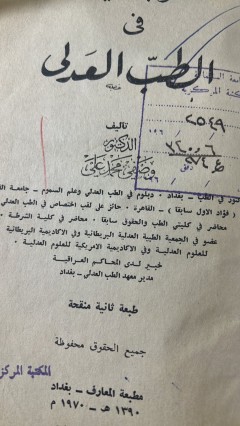 في
الطب العدلي
تأليف
الدكتور
وصفي محمد علي
في الطب - بغداد . دبلوم في الطب العدلي وعلم السموم - جامعة
( فؤاد الاول سابقا ) - القاهرة . حائز على لقب اختصاص في الطب العدلي
محاضر في كليتي الطب والحقوق سابقا . محاضر في كلية الشرطة .
عضو في الجمعية الطبية العدلية البريطانية وفي الاكاديمية البريطانية
للعلوم العدلية وفي الاكاديمية الامريكية للعلوم العدلية .
خبير لدى المحاكم العراقية
مدير معهد الطب العدلي - بغداد
طبعة ثانية منقحة
جميع الحقوق محفوظة
المكتبة المركز
مطبعة المعارف - بغداد
١٣٩٠ هـ - ١٩٧٠ م